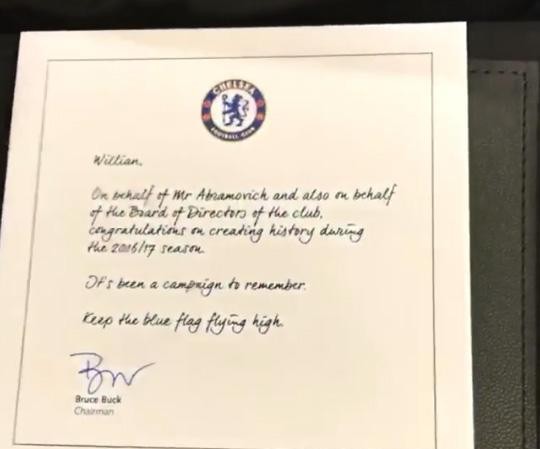 CHELSEA
FOOTBALL CLUB
Willian,
On behalf of Mr Abramovich and also on behalf
of the Board of Directors of the club,
congratulations on creating history during
the 2016/17 season.
It's been a campaign to remember.
Keep the blue flag flying high.
Bruce Buck
Chairman